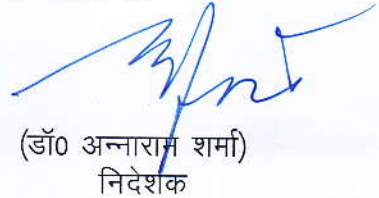 (डॉ0 अन्नाराम शर्मा)
निदेशक